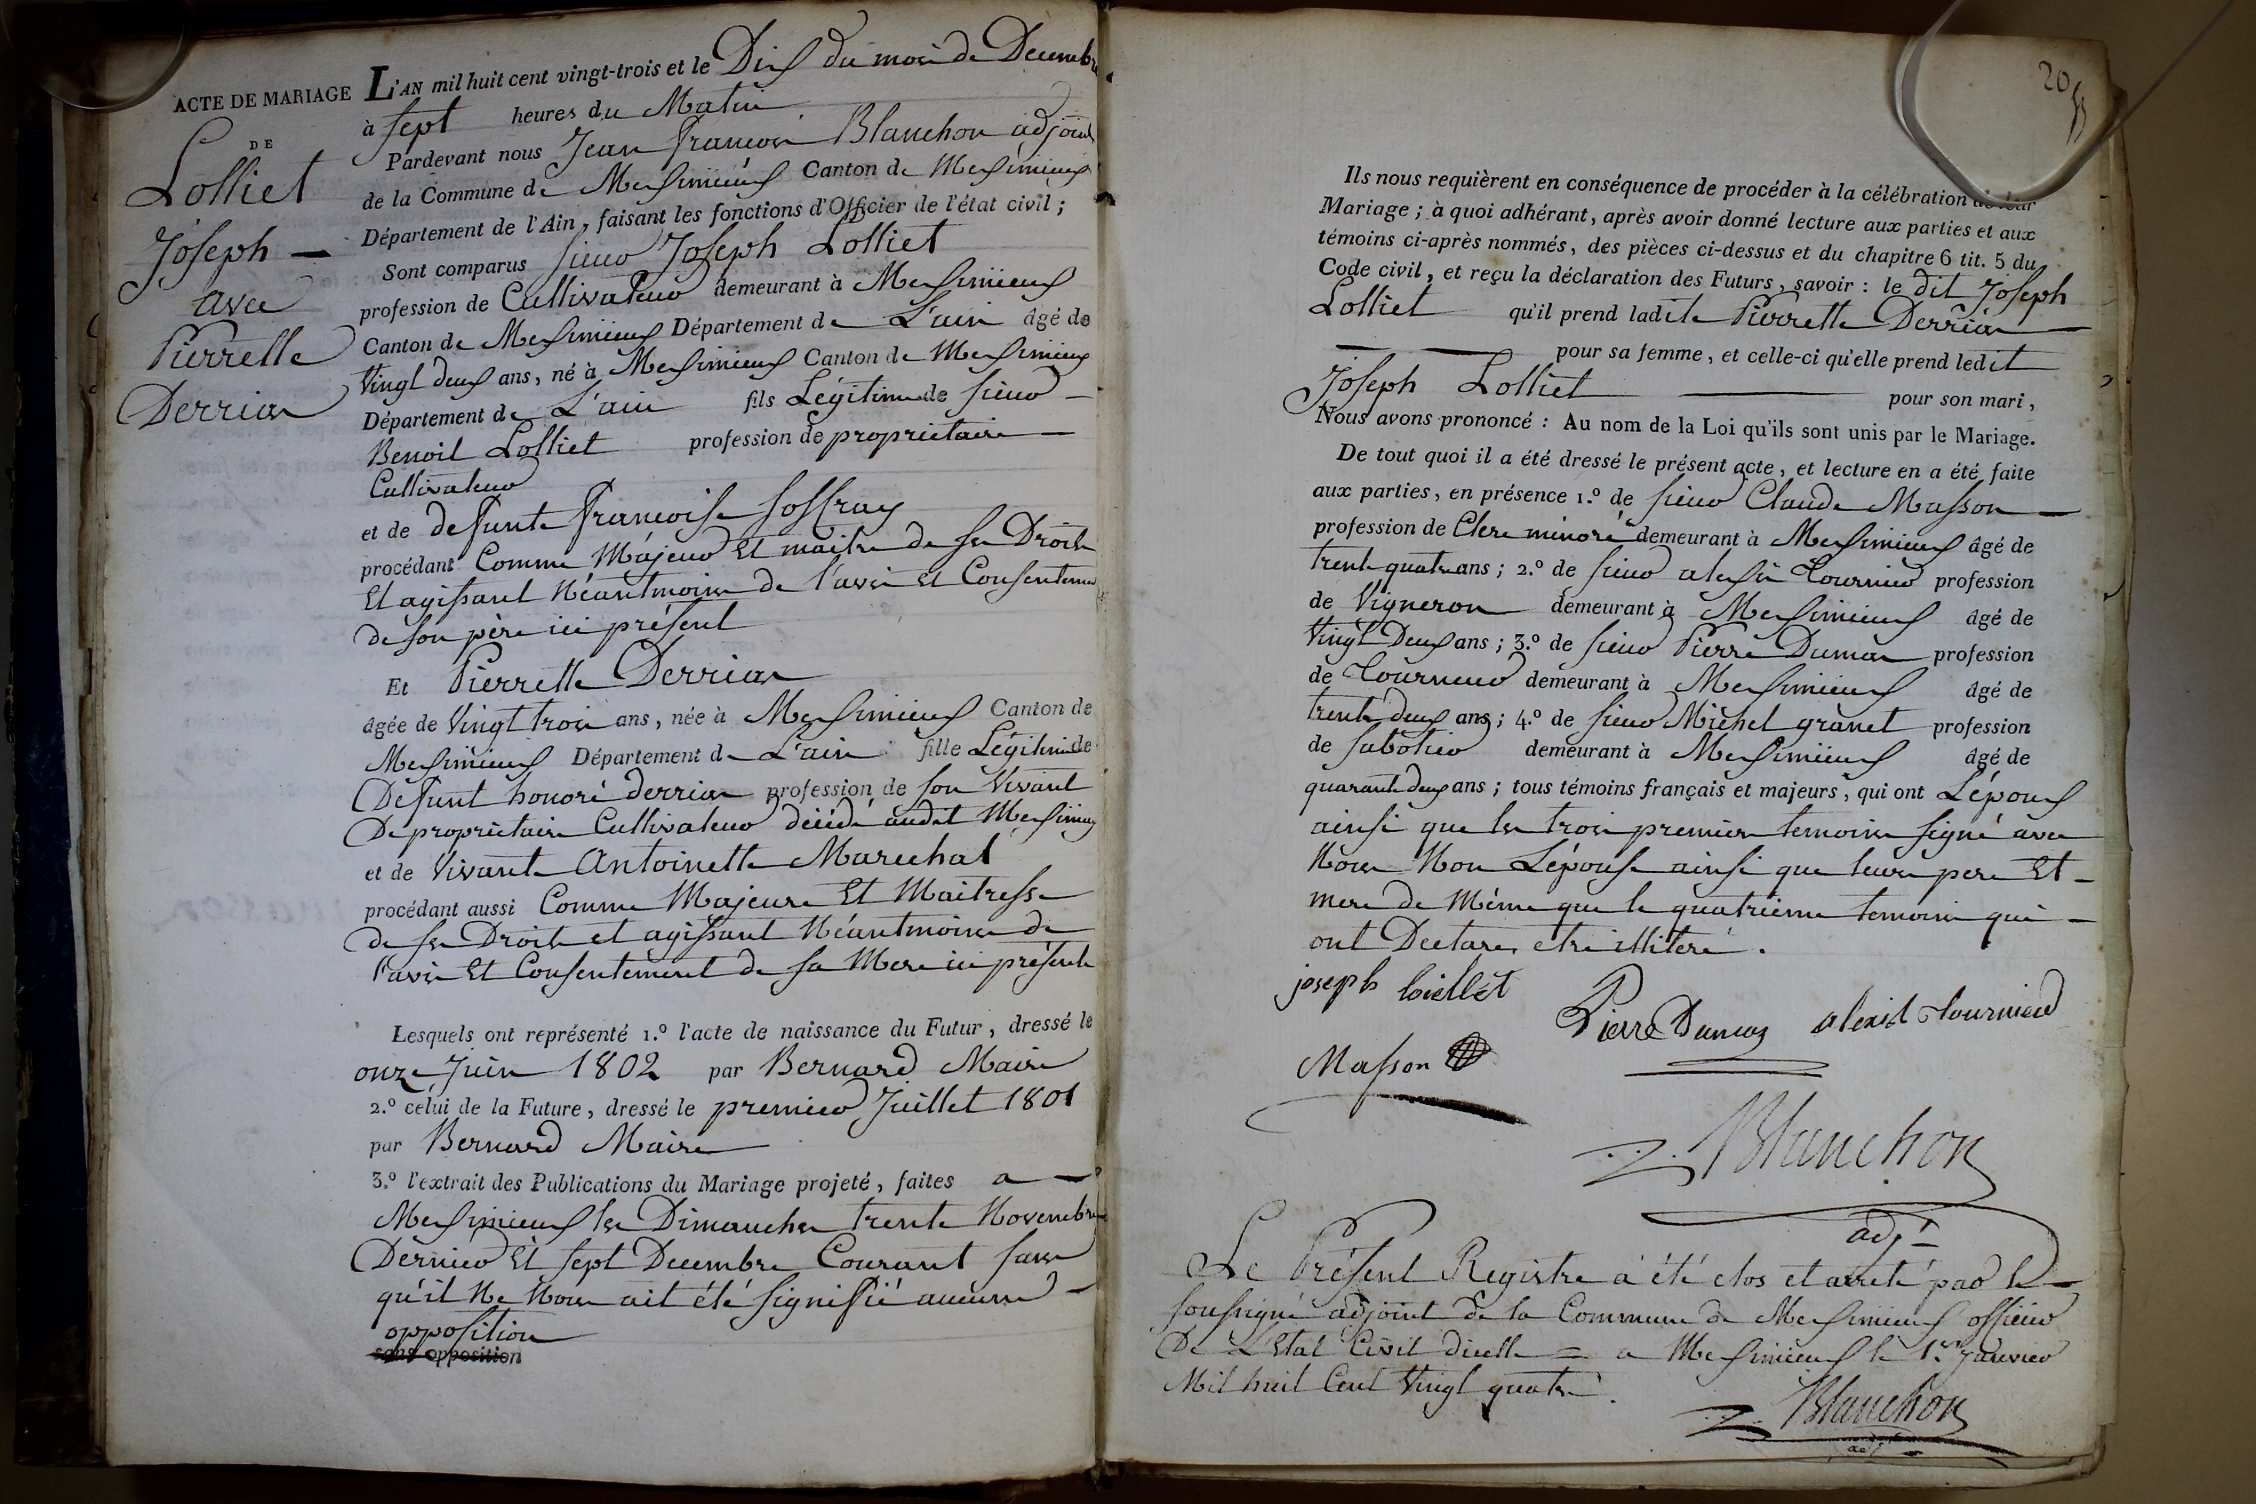 ACTE DE MARIAGE
DE
Lolliet
Joseph —
avec
Pierrette
Derrias
L'AN mil huit cent vingt-trois et le Dix du mois de Decembre
à sept heures du Matin
Pardevant nous Jean françois Blanchon adjoint
de la Commune de Meximieux Canton de Meximieux
Département de l'Ain, faisant les fonctions d'Officier de l'état civil ;
Sont comparus sieur Joseph Lolliet
profession de Cultivateur demeurant à Meximieux
Canton de Meximieux Département de L'ain âgé de
Vingt deux ans, né à Meximieux Canton de Meximieux
Département de L'ain fils Légitime de sieur —
Benoit Lolliet profession de proprietaire —
Cultivateur
et de defunte françoise
procédant Comme Majeur Et maitre de ses Droits
Et agissant Néantmoins de l'avis Et Consentement
de son père ici présent
Et Pierrette Derrias
âgée de Vingt trois ans, née à Meximieux Canton de
Meximieux Département de L'ain fille Légitime de
Defunt honoré derrias profession de son Vivant
De proprietaire Cultivateur décédé audit Meximieux
et de Vivante Antoinette Marechal
procédant aussi Comme Majeure Et Maitresse
de ses Droits et agissant Néantmoins de
l'avis Et Consentement de sa Mere ici présente
Lesquels ont représenté 1.º l'acte de naissance du Futur, dressé le
onze Juin 1802 par Bernard Maire
2.º celui de la Future, dressé le premier Juillet 1801
par Bernard Maire
3.º l'extrait des Publications du Mariage projeté, faites a —
Meximieux les Dimanches trente Novembre
Dernier Et sept Decembre Courant sans
qu'il Ne Nous ait été signifié aucune —
opposition
sans opposition
20
Ils nous requièrent en conséquence de procéder à la célébration de leur
Mariage ; à quoi adhérant, après avoir donné lecture aux parties et aux
témoins ci-après nommés, des pièces ci-dessus et du chapitre 6 tit. 5 du
Code civil, et reçu la déclaration des Futurs, savoir : le dit Joseph
Lolliet qu'il prend ladite Pierrette Derrias —
pour sa femme, et celle-ci qu'elle prend ledit
Joseph Lolliet — pour son mari,
Nous avons prononcé : Au nom de la Loi qu'ils sont unis par le Mariage.
De tout quoi il a été dressé le présent acte, et lecture en a été faite
aux parties, en présence 1.º de sieur Claude Masson —
profession de Clerc minoré demeurant à Meximieux âgé de
trente quatre ans ; 2.º de sieur alexis Tournier profession
de Vigneron demeurant à Meximieux âgé de
Vingt Deux ans ; 3.º de sieur Pierre Dumas profession
de Tourneur demeurant à Meximieux âgé de
trente deux ans ; 4.º de sieur Michel granet profession
de sabotier demeurant à Meximieux âgé de
quarante deux ans ; tous témoins français et majeurs, qui ont L'époux
ainsi que les trois premiers temoins signé avec
Nous Non L'épouse ainsi que leurs pere Et —
mere de Même que le quatrieme temoin qui —
ont Declarer etre illiteré.
joseph loiellet
Pierre Dumas
alexis tournier
Masson
Blanchon
adj.t
Le Présent Registre a été clos et arreté par le —
soussigné adjoint de la Commune de Meximieux officier
De L'Etat Civil dicelle = a Meximieux le 1.er Janvier
Mil huit Cent Vingt quatre.
Blanchon
adj.t